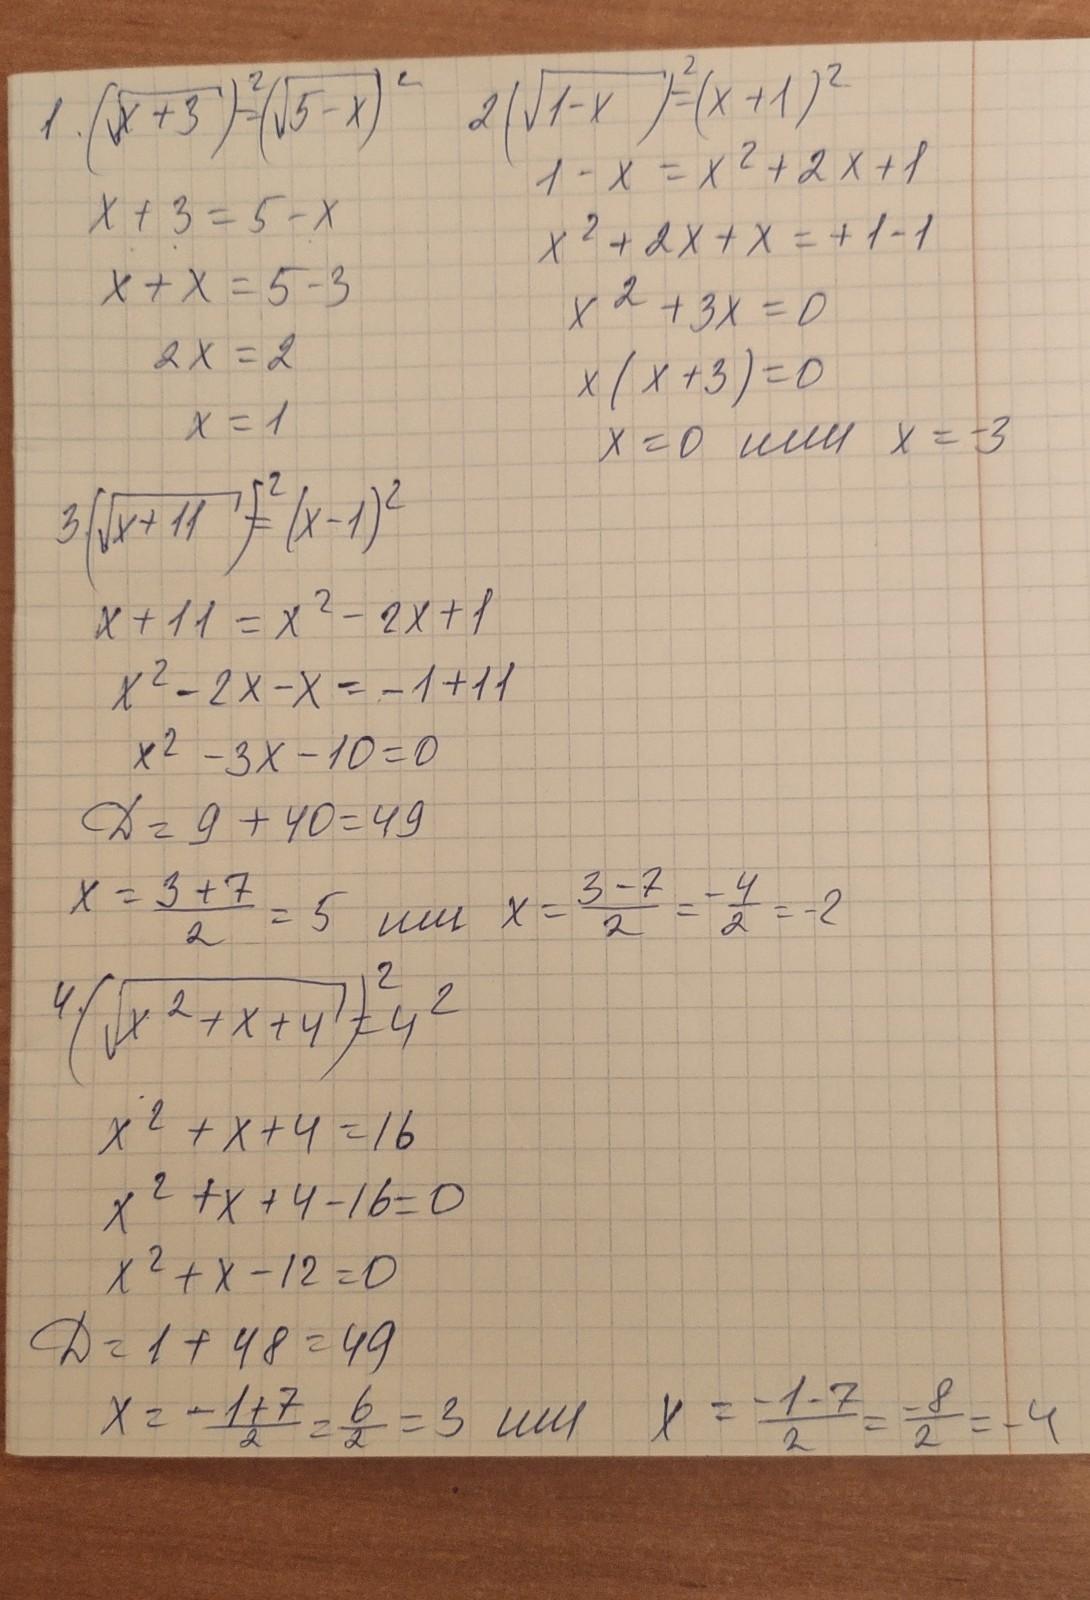 1. (√x+3)²=(√5-x)²
x+3=5-x
x+x=5-3
2x=2
x=1
2(√1-x)²=(x+1)²
1-x=x²+2x+1
x²+2x+x=+1-1
x²+3x=0
x(x+3)=0
x=0 или x=-3
3.(√x+11)²=(x-1)²
x+11=x²-2x+1
x²-2x-x=-1+11
x²-3x-10=0
Д=9+40=49
x=3+7/2=5 или x=3-7/2=-4/2=-2
4.(√x²+x+4)²=4²
x²+x+4=16
x²+x+4-16=0
x²+x-12=0
Д=1+48=49
x=-1+7/2=6/2=3 или x=-1-7/2=-8/2=-4